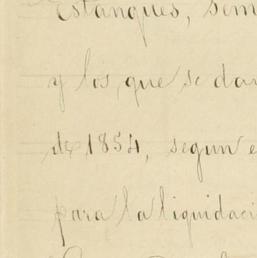 Estanques, sem
y los que se dan
de 1854, segun e
para la liquidaci